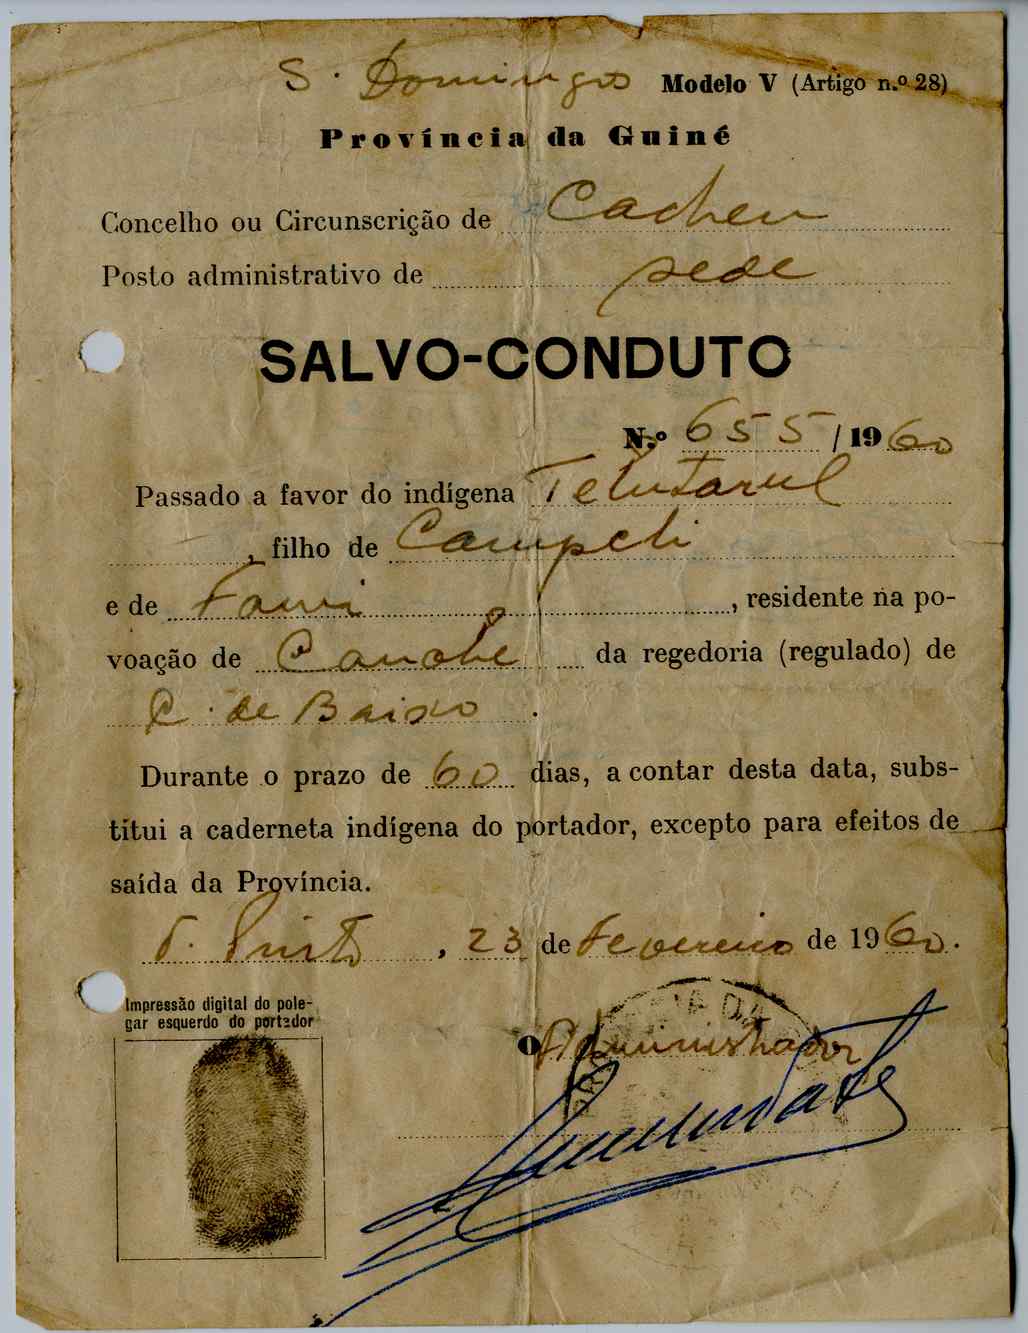 S. Domingos Modelo V (Artigo n.º 28)
Província da Guiné
Concelho ou Circunscrição de Cacheu
Posto administrativo de sede
SALVO-CONDUTO
N.º 655/1960
Passado a favor do indígena
, filho de Campeli
e de Fami, residente na po-
voação de da regedoria (regulado) de
C. de Baixo.
Durante o prazo de 60 dias, a contar desta data, subs-
titui a caderneta indígena do portador, excepto para efeitos de
saída da Província.
, 23 de Fevereiro de 1960.
Impressão digital do pole-
gar esquerdo do portador
O Administrador